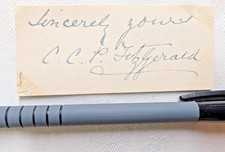 Sincerely yours
C. C. P. Fitzgerald